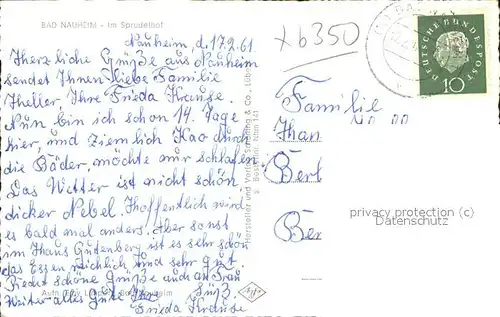 BAD NAUHEIM - Im Sprudelhof
Nauheim, d. 17.2.61.
Herzliche Grüße aus Nauheim
sendet Ihnen Liebe Familie
Theller, Ihre Frieda Krause.
Nun bin ich schon 14 Tage
hier, und ziemlich Kao durch
die Bäder, möchte nur schlafen.
Das Wetter ist nicht schön
dicker Nebel. Hoffentlich wird
es bald mal anders. Aber sonst
im Haus Gutenberg ist es sehr schön
das Essen reichlich und sehr gut.
Recht schöne Grüße auch an Frau
Weiter alles Gute
Frieda Krause
Hersteller und Vertrieb Schöning & Co., Lübeck
Nhm 141
x6350
DEUTSCHE BUNDESPOST
10
Familie
Berl
Ber
privacy protection (c)
Datenschutz
Agfa